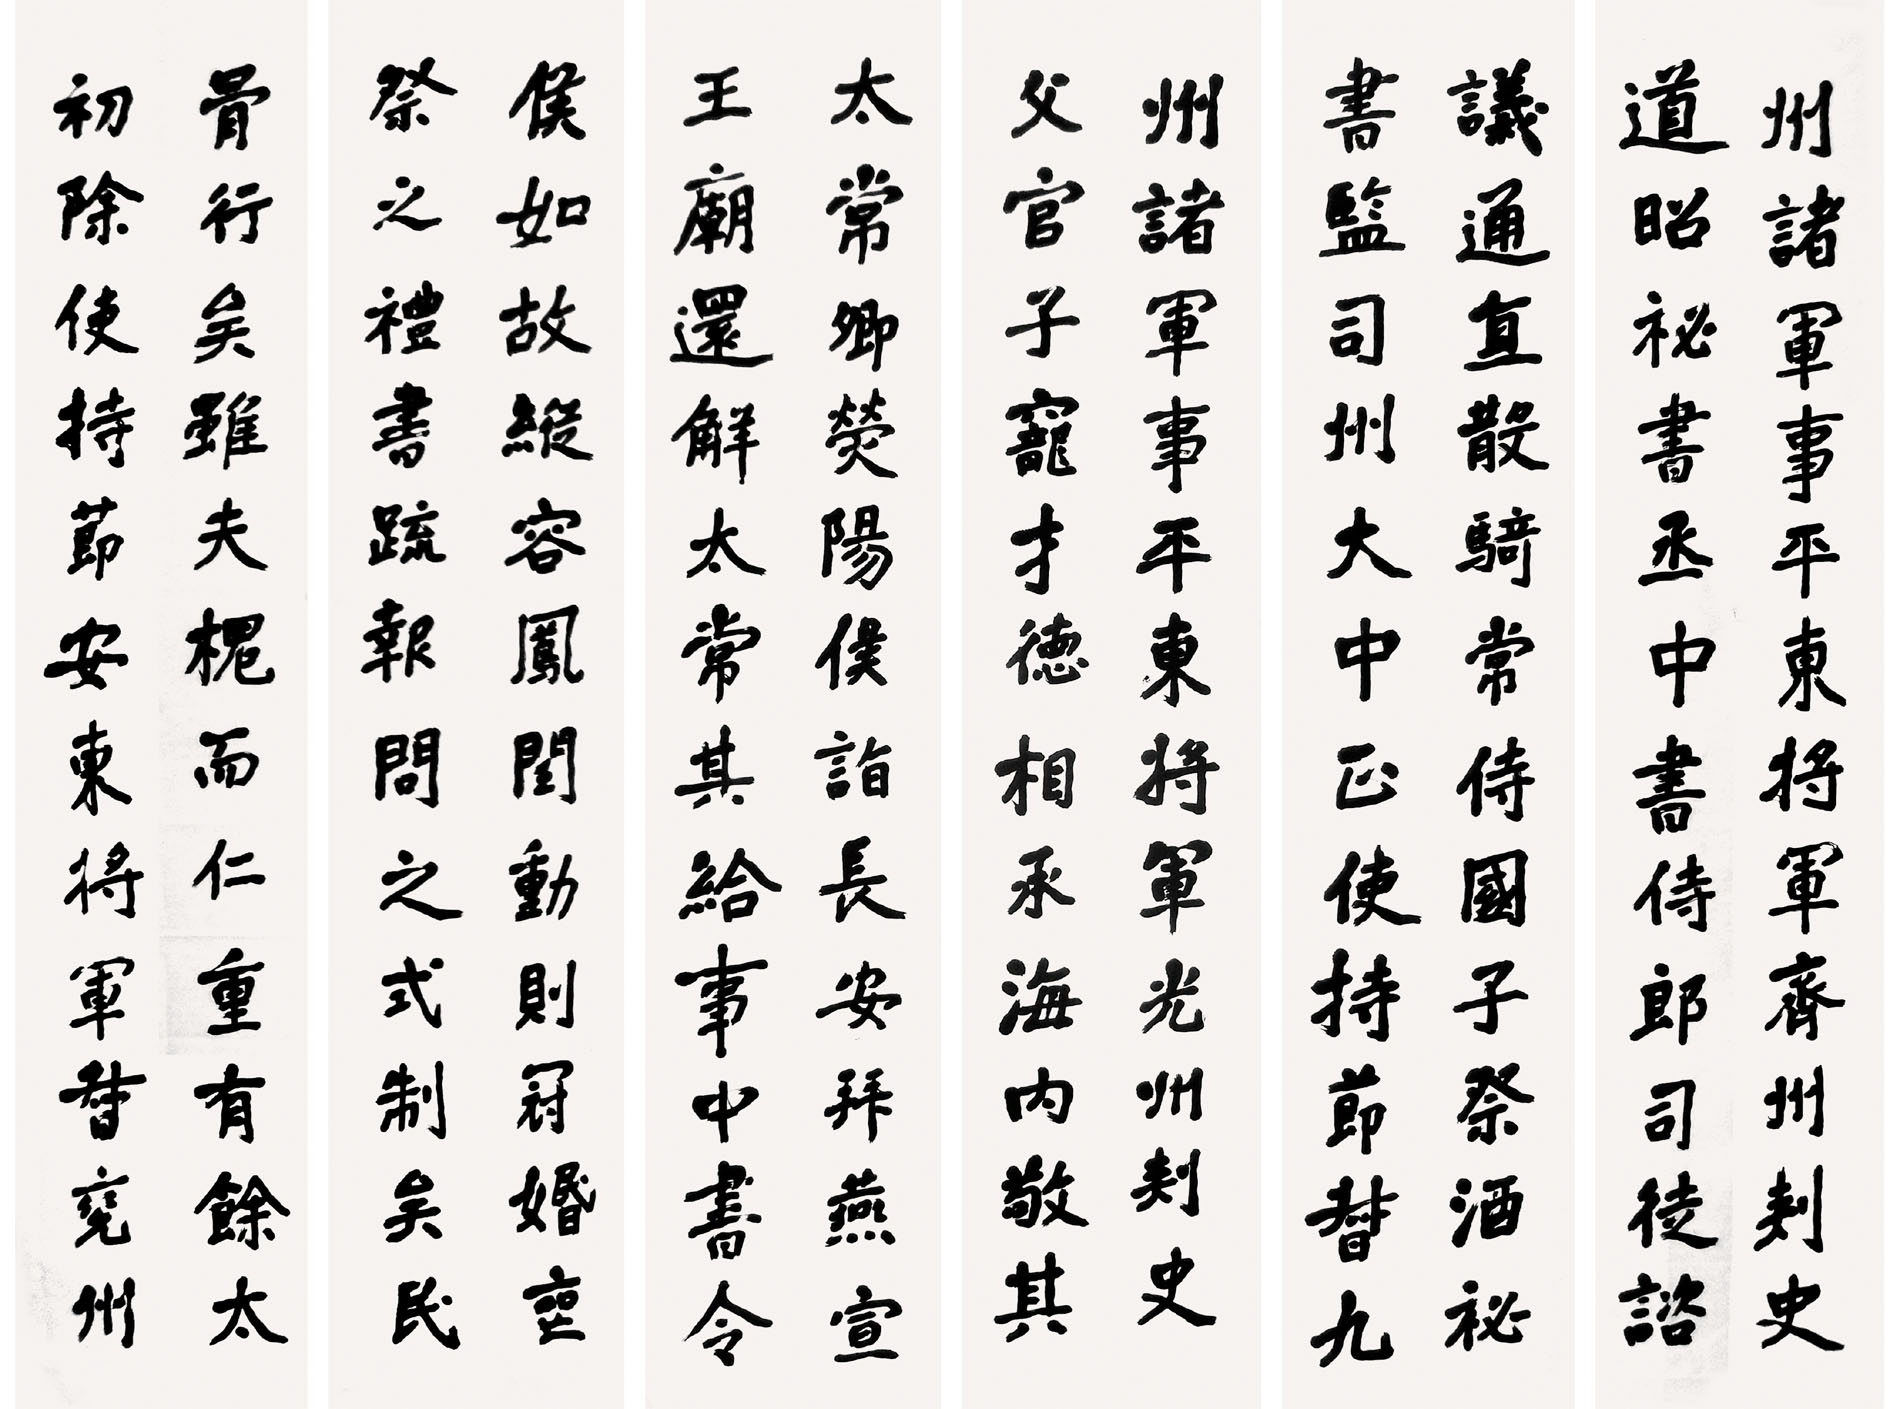 州諸軍事平東将軍齊州刾史
道昭祕書丞中書侍郎司徒諮
議通直散騎常侍國子祭酒祕
書監司州大中正使持節督九
州諸軍事平東将軍光州刾史
父官子寵才德相承海内敬其
太常卿熒陽侯詣長安拜燕宣
王廟還解太常其給事中書令
侯如故縱容鳳閏動則冠婚喪
祭之禮書疏報問之式制矣民
骨行矣雖夫槐而仁重有餘太
初除使持節安東将軍督兗州